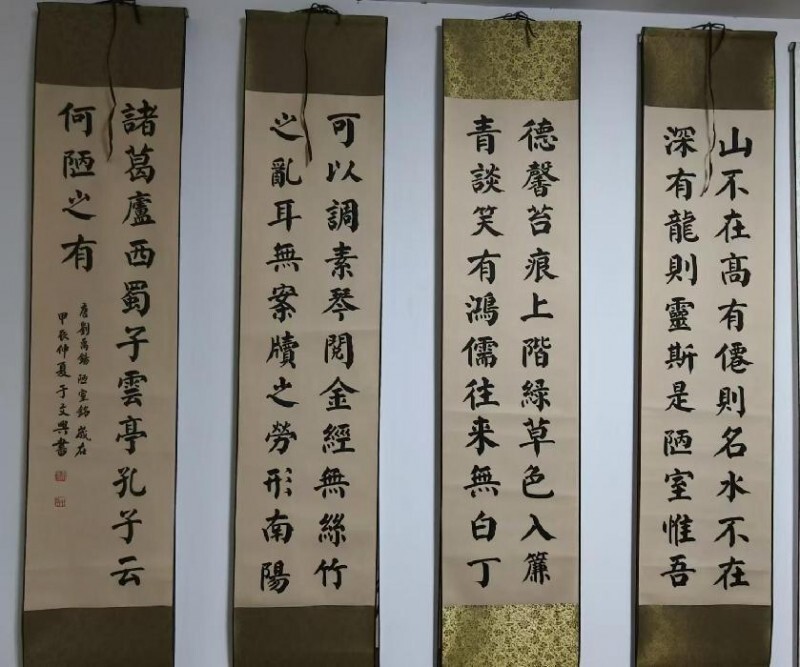 山不在高有僊則名水不在
深有龍則靈斯是陋室惟吾
德馨苔痕上階綠草色入簾
青談笑有鴻儒往来無白丁
可以調素琴閱金經無絲竹
之亂耳無案牘之勞形南陽
諸葛廬西蜀子雲亭孔子云
何陋之有
唐劉禹錫陋室銘歲在
甲辰仲夏于文興書